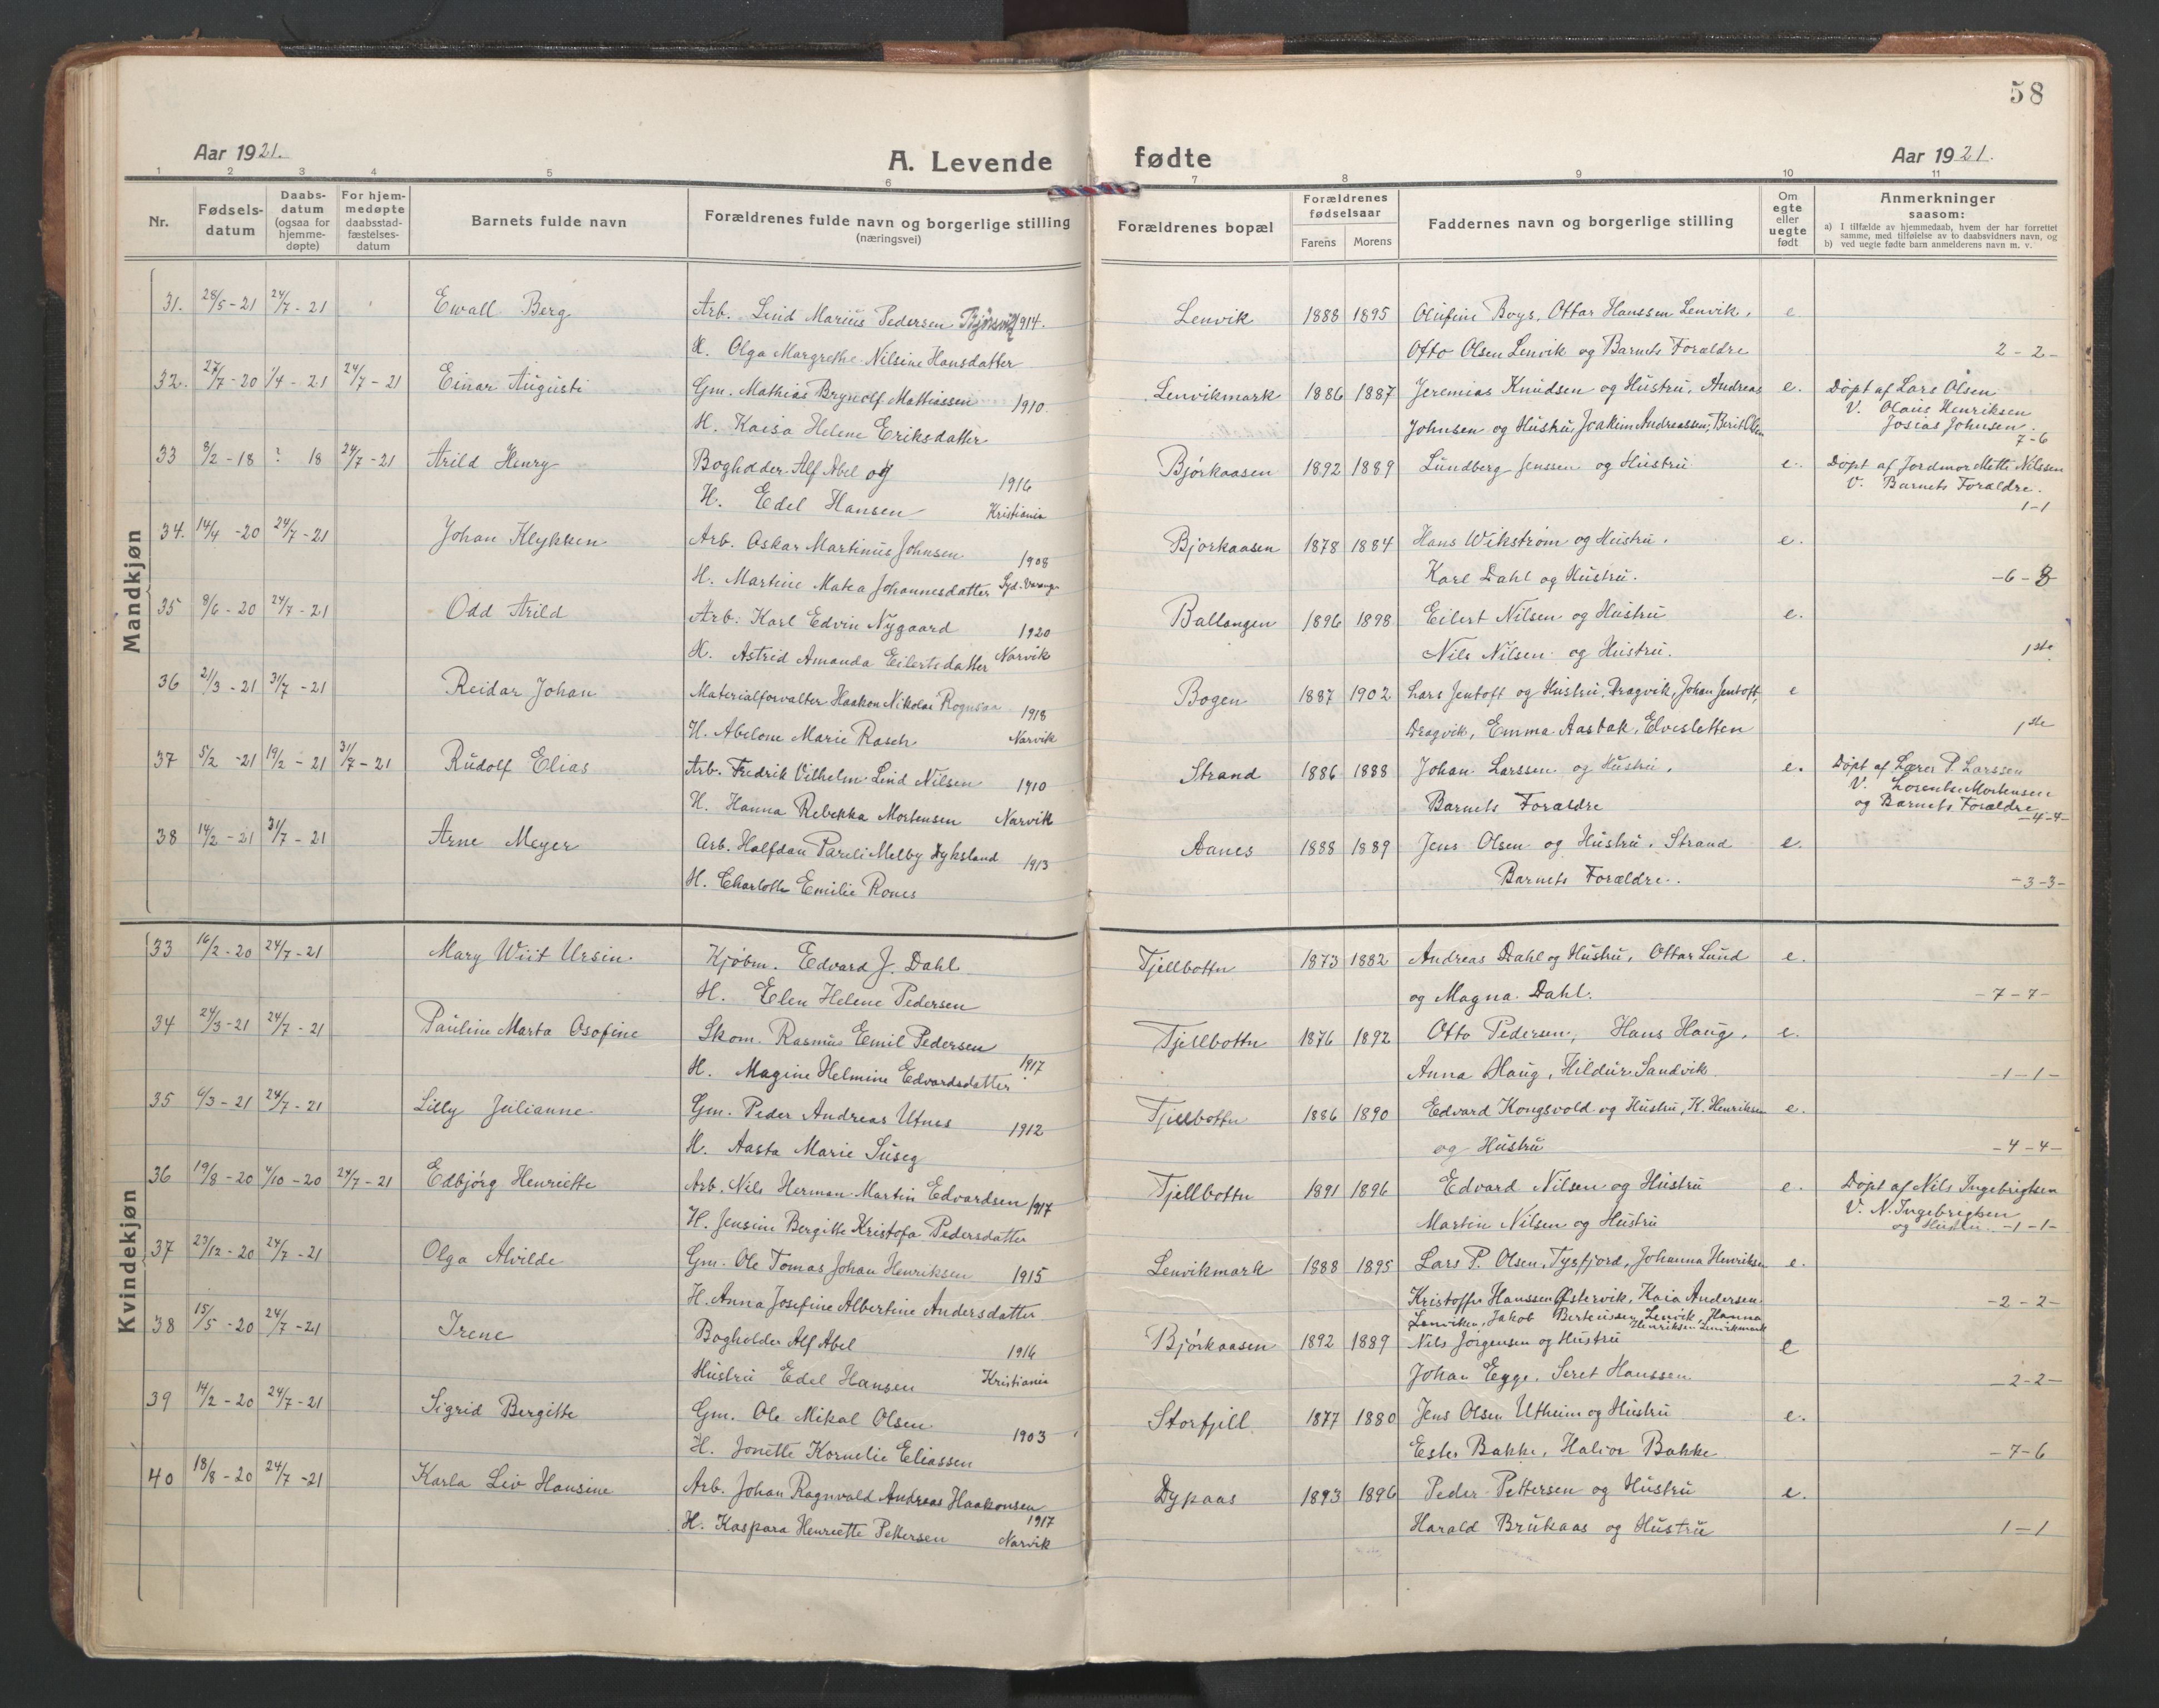 58
Aar 1921. A. Levende fødte Aar 1921.
1 2 3 4 5 6 7 8 9 10 11
Nr. Fødselsdatum Daabsdatum (ogsaa for hjemmedøpte) For hjemmedøpte daabsstadfæstelsesdatum Barnets fulde navn Forældrenes fulde navn og borgerlige stilling (næringsvei) Forældrenes bopæl Forældrenes fødselsaar Farens Morens Faddernes navn og borgerlige stilling Om egte eller uegte født Anmerkninger saasom:
a) I tilfælde av hjemmedaab, hvem der har forrettet samme, med tilføielse av to daabsvidners navn, og
b) ved uegte fødte barn anmelderens navn m. v.
Mandkjøn
31. 28/5-21 24/7-21 Ewall Berg Arb. Lind Marius Pedersen 1914. Lenvik 1888 1895 Olufine Boys, Ottar Hanssen Lenvik, e
H. Olga Margrethe Nilsine Hansdatter Otto Olsen Lenvik og Barnets Forældre 2-2-
32. 27/7-20 1/4-21 24/7-21 Einar Augusti Gm. Mathias Brynolf Mathiassen 1910. Lenvikmark 1886 1887 Jeremias Knudsen og Hustru, Andreas e. Døpt af Lars Olsen
H. Kaisa Helene Eriksdatter Johnsen og Hustru, Joakim Andreassen, Berit Olsen V. Olaus Henriksen
Josias Johnsen.
7-6
33 8/2-18 ? 18 24/7-21 Arild Henry Bogholder Alf Abel og 1916 Bjørkaasen 1892 1889 Lundberg Jenssen og Hustru e. Døpt af Jordmor Metti Nilssen
H. Edel Hansen Kristiania V. Barnets Forældre.
1-1
34. 14/4-20 24/7-21 Johan Klykken Arb. Oskar Martinus Johnsen 1908 Bjørkaasen 1878 1884 Hans Wikstrøm og Hustru. e.
H. Martine Matea Johannesdatter Syd-Varang. Karl Dahl og Hustru. -6-3
35 8/6-20 24/7-21 Odd Arild Arb. Karl Edvin Nygaard 1920 Ballangen 1896 1898 Eilert Nilsen og Hustru e.
H. Astrid Amanda Eilertsdatter Narvik Nils Nilsen og Hustru. 1ste
36 21/3-21 31/7-21 Reidar Johan Materialforvalter Haakon Nikolai Rognsaa 1918 Bogen 1887 1902 Lars Jentoft og Hustru, Dragvik, Johan Jentoft, e
H. Abelone Marie Rasch Narvik Dragvik, Emma Aasbak, Elvesletten 1ste
37 5/2-21 19/2-21 31/7-21 Rudolf Elias Arb. Fredrik Vilhelm Lind Nilsen 1910 Strand 1886 1888 Johan Larssen og Hustru. e. Døpt af Lærer P. Larssen
H. Hanna Rebekka Mortensen Narvik Barnets Forældre V. Lorents Mortensen
og Barnets Forældre -4-4-
38 14/2-21 31/7-21 Arne Meyer Arb. Halfdan Pareli Melby Dyksland 1913 Aanes 1888 1889 Jens Olsen og Hustru. Strand e.
H. Charlotte Emilie Rones Barnets Forældre. -3-3-
Kvindekjøn
33 16/2-20 24/7-21 Mary Wiit Ursin. Kjøbm. Edvard J. Dahl Fjellbottn 1873 1882 Andreas Dahl og Hustru, Ottar Lund e.
H. Elen Helene Pedersen og Magna Dahl. -7-7-
34 24/3-21 24/7-21 Pauline Marta Osofine Skom. Rasmus Emil Pedersen Fjellbottn 1876 1892 Otto Pedersen, Hans Haug. e.
H. Magine Helmine Edvardsdatter 1917 Anna Haug, Hildur Sandvik -1-1-
35 6/3-21 24/7-21 Lilly Julianne Gm. Peder Andreas Utnes 1912 Fjellbottn 1886 1890 Edvard Kongsvold og Hustru, K. Henriksen e.
H. Aasta Marie Suseg og Hustru -4-4-
36 19/8-20 4/10-20 24/7-21 Edbjørg Henriette Arb. Nils Herman Martin Edvardsen 1917 Fjellbottn 1891 1896 Edvard Nilsen og Hustru e. Døpt af Nils Ingebrigtsen
H. Jensine Bergitte Kristofa Pedersdatter Martin Nilsen og Hustru V. N. Ingebrigtsen
og Hustru. -1-1-
37 23/12-20 24/7-21 Olga Alvilde Gm. Ole Tomas Johan Henriksen 1915 Lenvikmark 1888 1895 Lars P. Olsen, Tysfjord, Johanna Henriksen e.
H. Anna Josefine Albertine Andersdatter Kristoffer Hanssen Østervik, Kaia Andersen -2-2-
Lenviken, Jakob Berteussen Lenvik, Hanna
Henriksen Lenvikmark
38 15/5-20 24/7-21 Irene Bogholder Alf Abel 1916 Bjørkaasen 1892 1889 Nils Jørgensen og Hustru e
Hustru Edel Hansen Kristiania Johan Egge, Seret Hanssen -2-2-
39 14/2-20 24/7-21 Sigrid Bergitte Gm. Ole Mikal Olsen 1903 Storfjell 1877 1880 Jens Olsen Utheim og Hustru e.
H. Jonette Kornelie Eliassen Ester Bakke, Halvor Bakke -7-6
40 18/8-20 24/7-21 Karla Liv Hansine Arb. Johan Ragnvald Andreas Haakonsen Dypaas 1893 1896 Peder Pettersen og Hustru e.
H. Kaspara Henriette Pettersen 1917 Narvik Harald Brukaas og Hustru 1-1